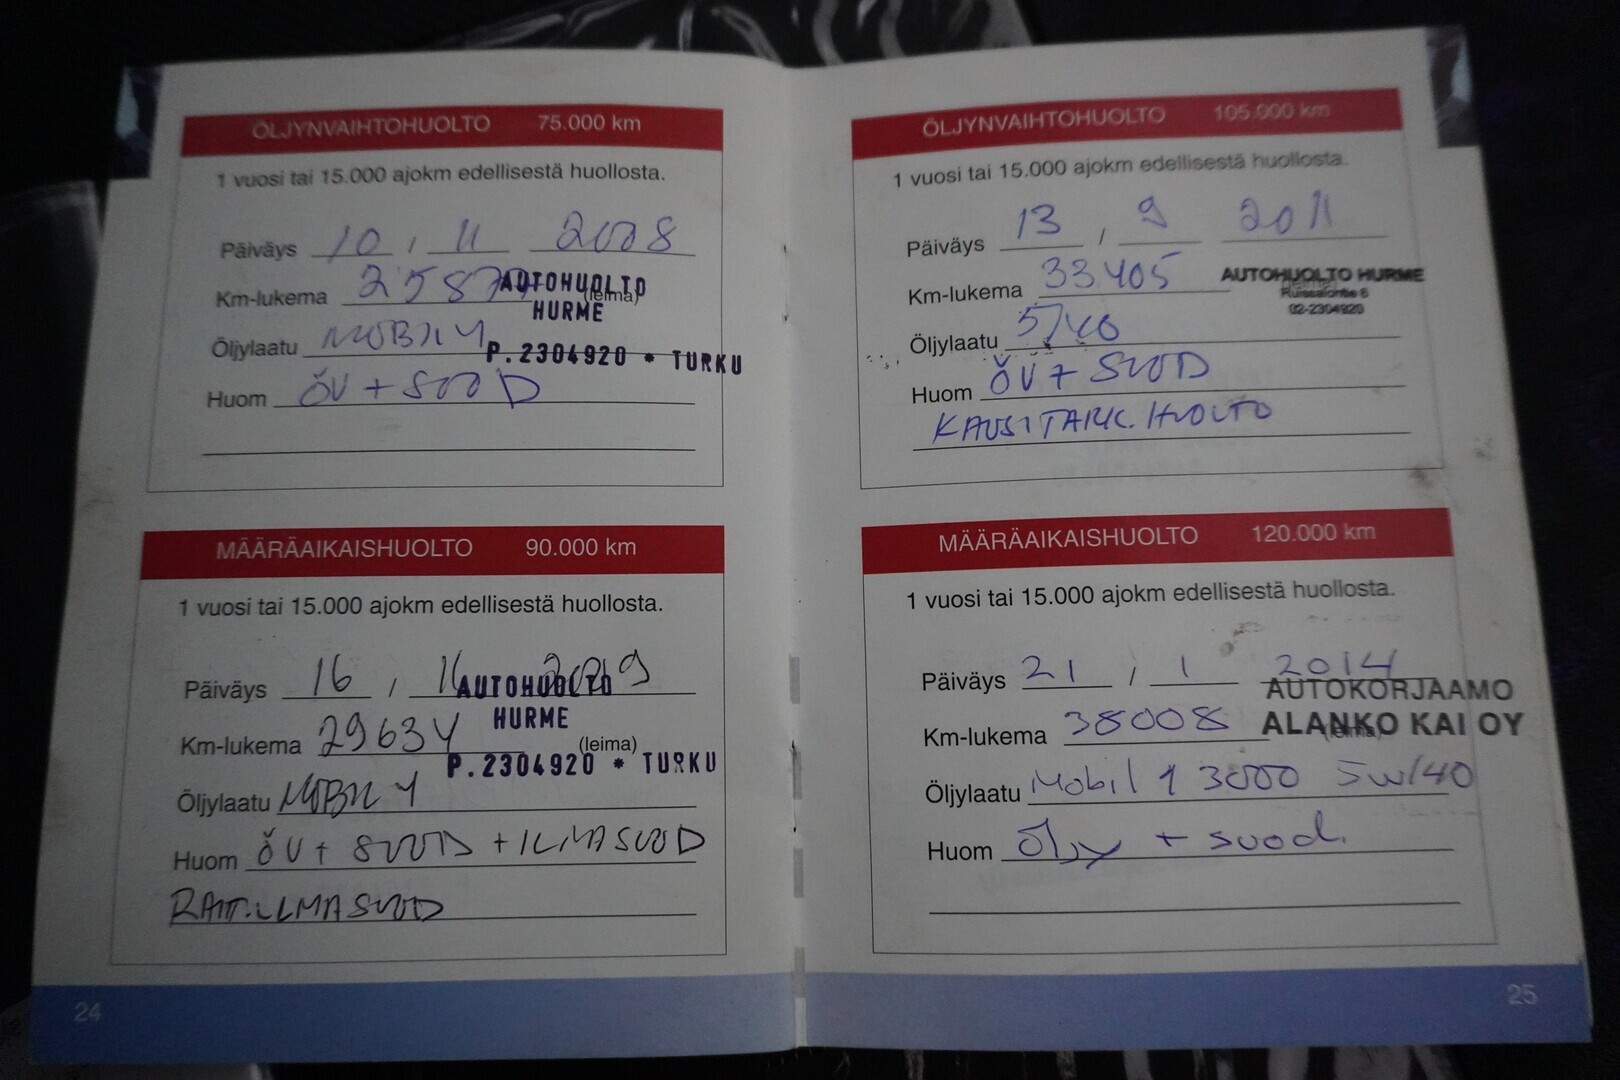 ÖLJYNVAIHTOHUOLTO 75.000 km
1 vuosi tai 15.000 ajokm edellisestä huollosta.
Päiväys 10 , 11 2008
Km-lukema
AUTOHUOLTO
(leima)
HURME
Öljylaatu MOBIL 1
P.2304920 * TURKU
Huom ÖV + SUOD
MÄÄRÄAIKAISHUOLTO 90.000 km
1 vuosi tai 15.000 ajokm edellisestä huollosta.
Päiväys 16 , 11 2009
AUTOHUOLTO
HURME
Km-lukema 29634 (leima)
P.2304920 * TURKU
Öljylaatu MOBIL 1
Huom ÖV + SUOD + ILMASUOD
RAIT.ILMASUOD
24
ÖLJYNVAIHTOHUOLTO 105.000 km
1 vuosi tai 15.000 ajokm edellisestä huollosta.
Päiväys 13 , 9 2011
Km-lukema 33405 AUTOHUOLTO HURME
Ruissalontie 6
02-2304920
Öljylaatu 5/40
Huom ÖV + SUOD
KAUSITARK. HUOLTO
MÄÄRÄAIKAISHUOLTO 120.000 km
1 vuosi tai 15.000 ajokm edellisestä huollosta.
Päiväys 21 , 1 2014
AUTOKORJAAMO
Km-lukema 38008 ALANKO KAI OY
(leima)
Öljylaatu Mobil 1 3000 5w/40
Huom Öljy + suod.
25